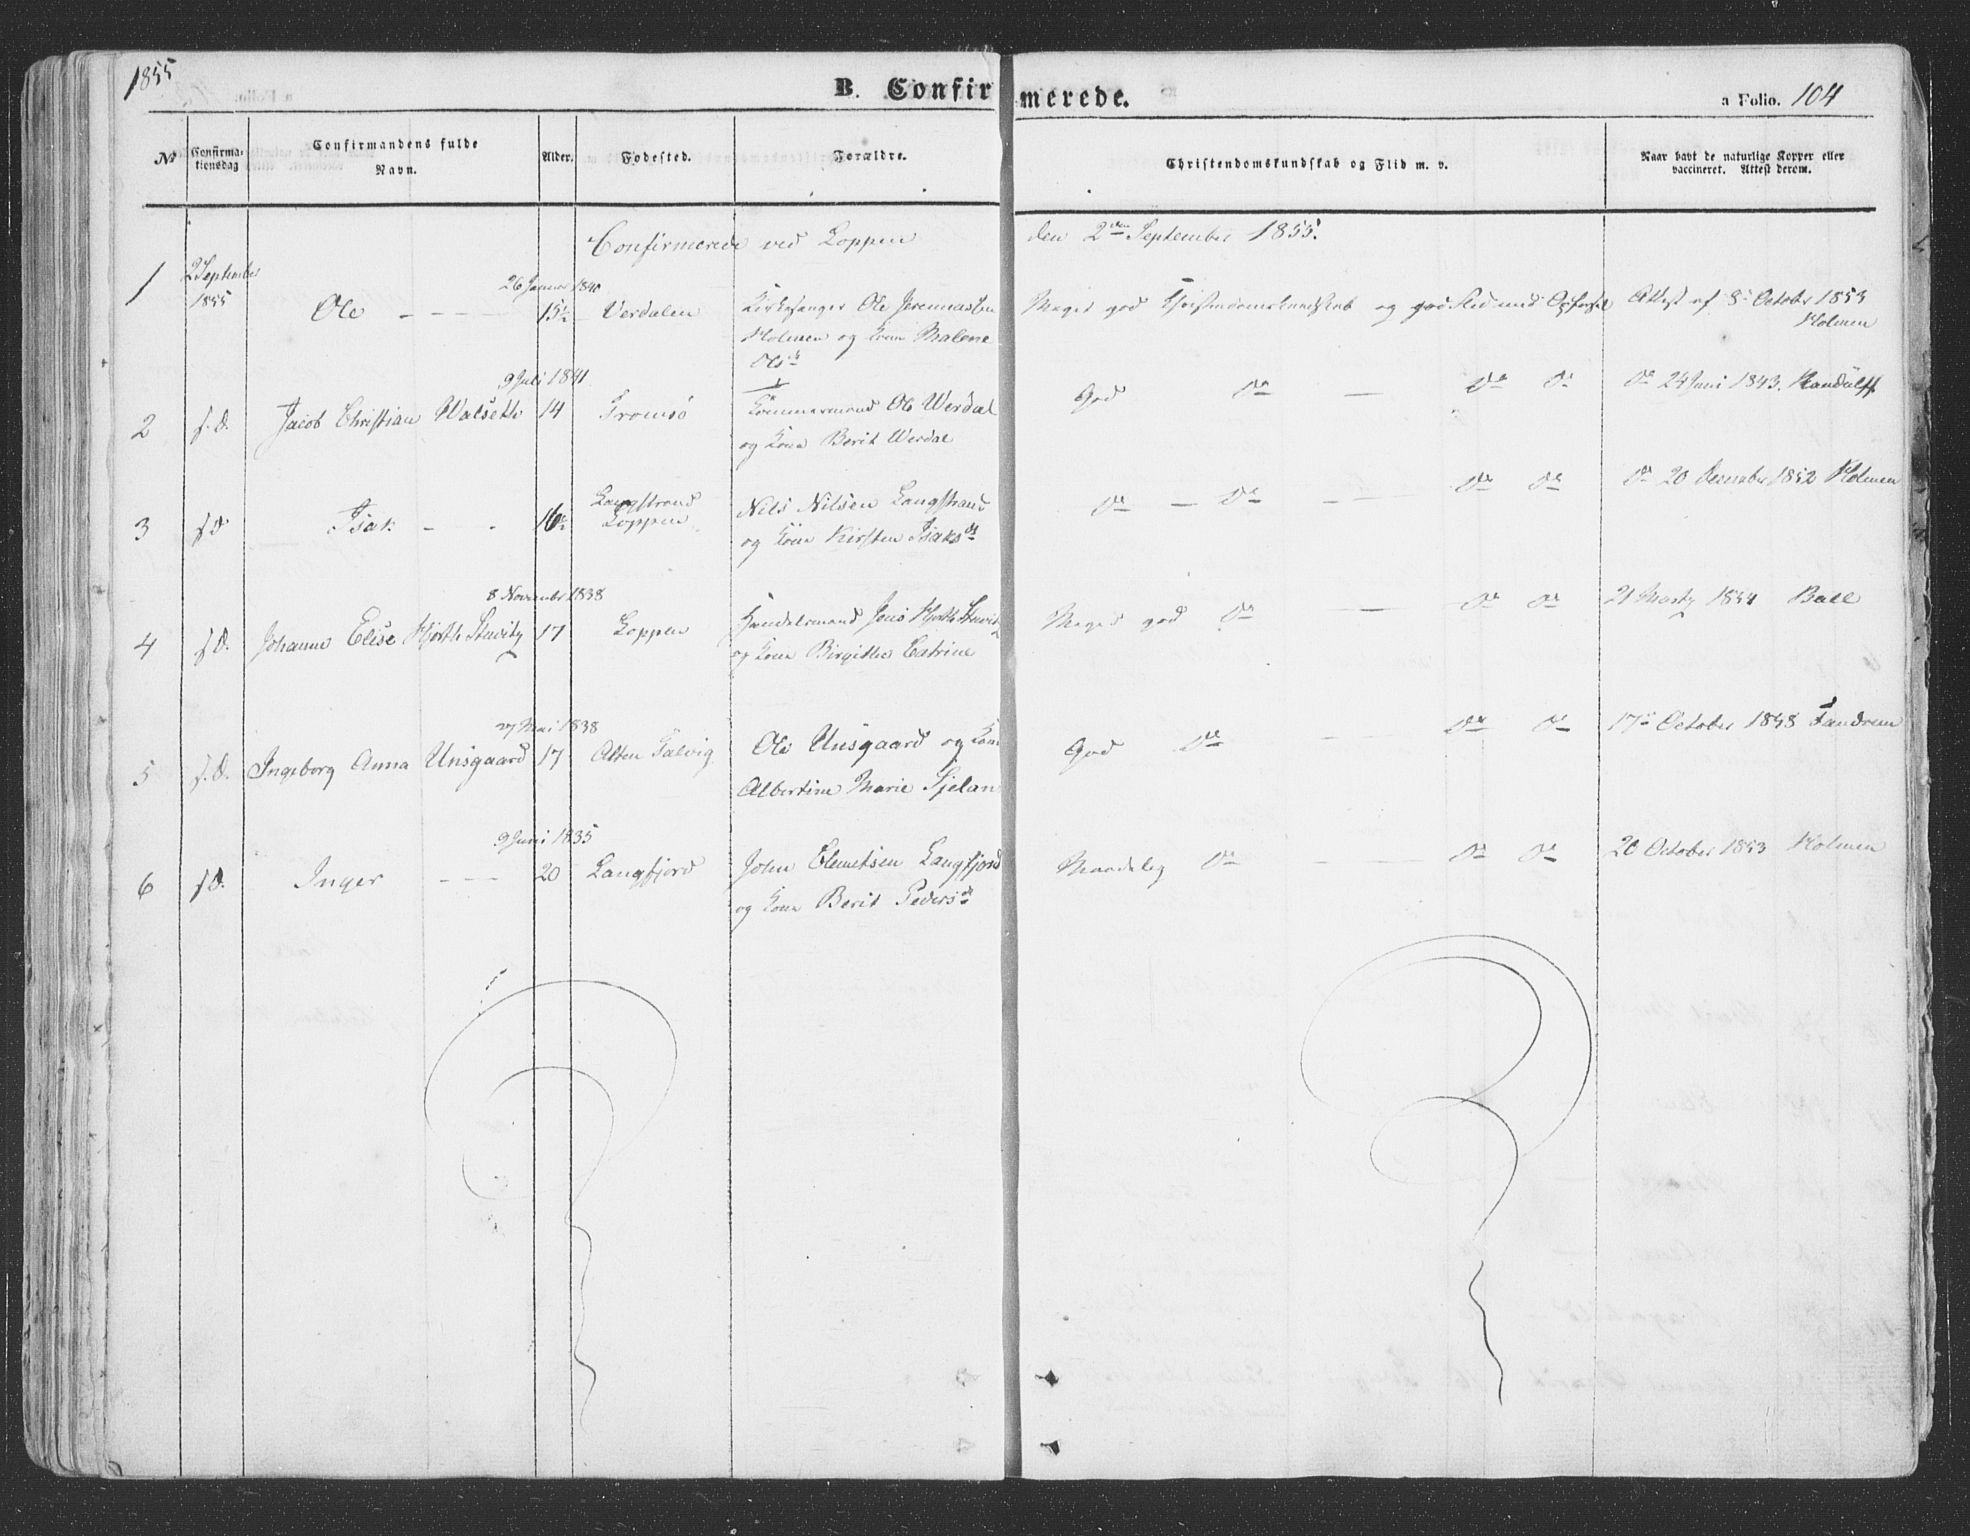 1855
B. Confirmerede.
a Folio. 104
No
Confirmationsdag
Confirmandens fulde Navn.
Alder.
Fødested.
Forældre.
Christendomskundskab og Flid m. v.
Naar havt de naturlige Kopper eller vaccineret. Attest derom.
Confirmerede ved Loppen den 2den September 1855.
1 2 September 1855 Ole — — — — 26 Januar 1840 15½ Verdalen Kirkesanger Ole Jeremiassen Meget god Christendomskundskab og god Flid med Opførsel Attest af 8de October 1853
Holmen og Kone Malene Holmen
Ols d
2 s. D. Jacob Christian Walseth 9 Juli 1841 14 Tromsø Ole Werdal God Do — Do Do Do 24 Juni 1843. Randulff
og Kone Berit Werdal
3 s D Isak — - 16½ Langstrand Loppen Nils Nilsen Langstrand Do — Do — — Do Do Do 20 December 1852 Holmen
og Kone Kirsten Isaks dt
4 s D. Johanne Elise Hjorth 8 November 1838 17 Loppen Handelsmand Jens Hjorth Meget god Do — — Do Do 21 1854 Ball
og Kone Birgithe Catrine
5 s. D. Ingeborg Anna Unsgaard 27 Mai 1838 17 Alten Talvig Ole Unsgaard og Kone God Do — — Do Do 17de October 1848 Tandrem
Albertine Marie
6 s D. Inger — — — 9 Juni 1835 20 Langfjord John Clemetsen Langfjord Maadelig Do — — Do Do 20 October 1853 Holmen
og Kone Berit Peders dt